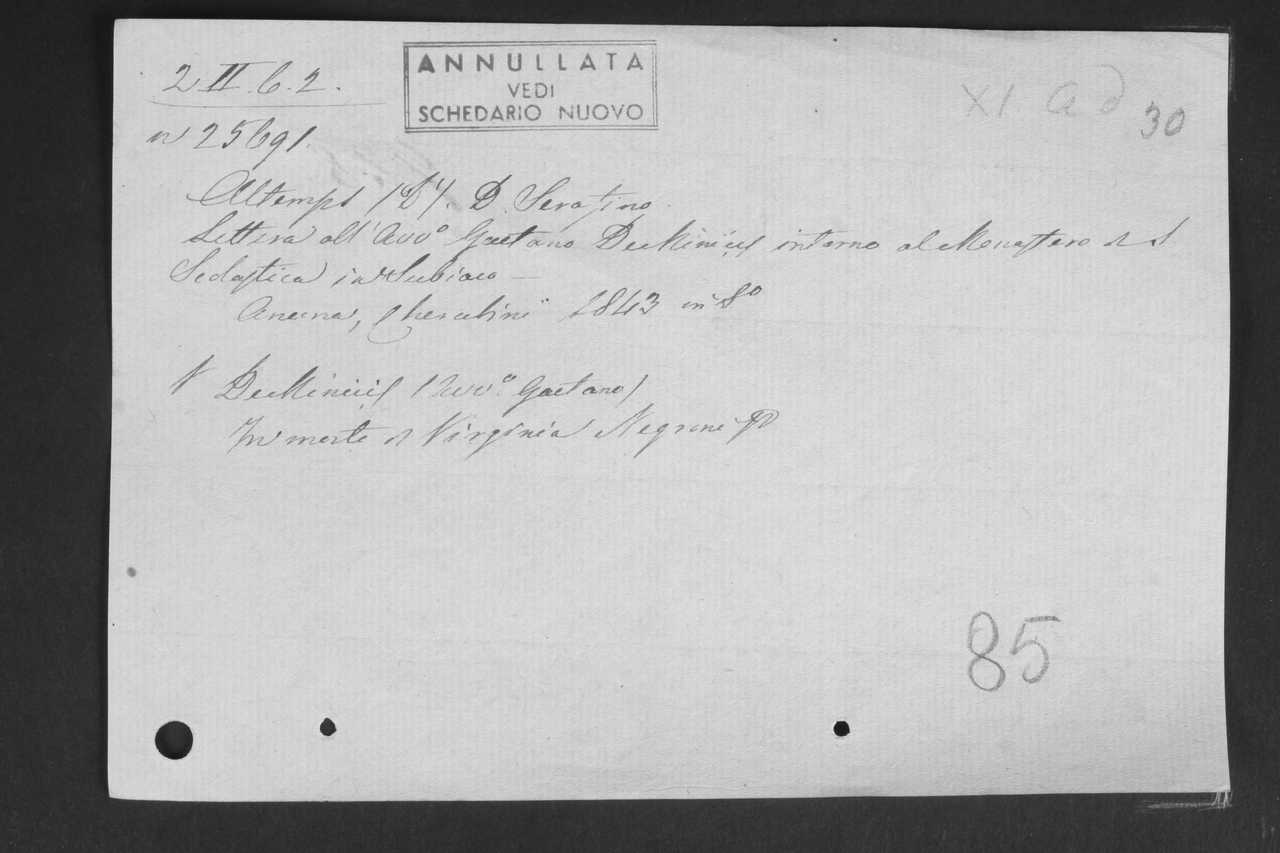 2 II. 6. 2.
ANNULLATA
VEDI
SCHEDARIO NUOVO
XI a d 30
n 25691.
Altemps D. Serafino.
Lettera all'Avvo Gaetano DeMinicis intorno al Monastero di S
Scolastica in Subiaco —
Ancona, Cherubini 1843 in 8o
DeMinicis (Avv.o Gaetano)
In morte di Virginia Negroni
85